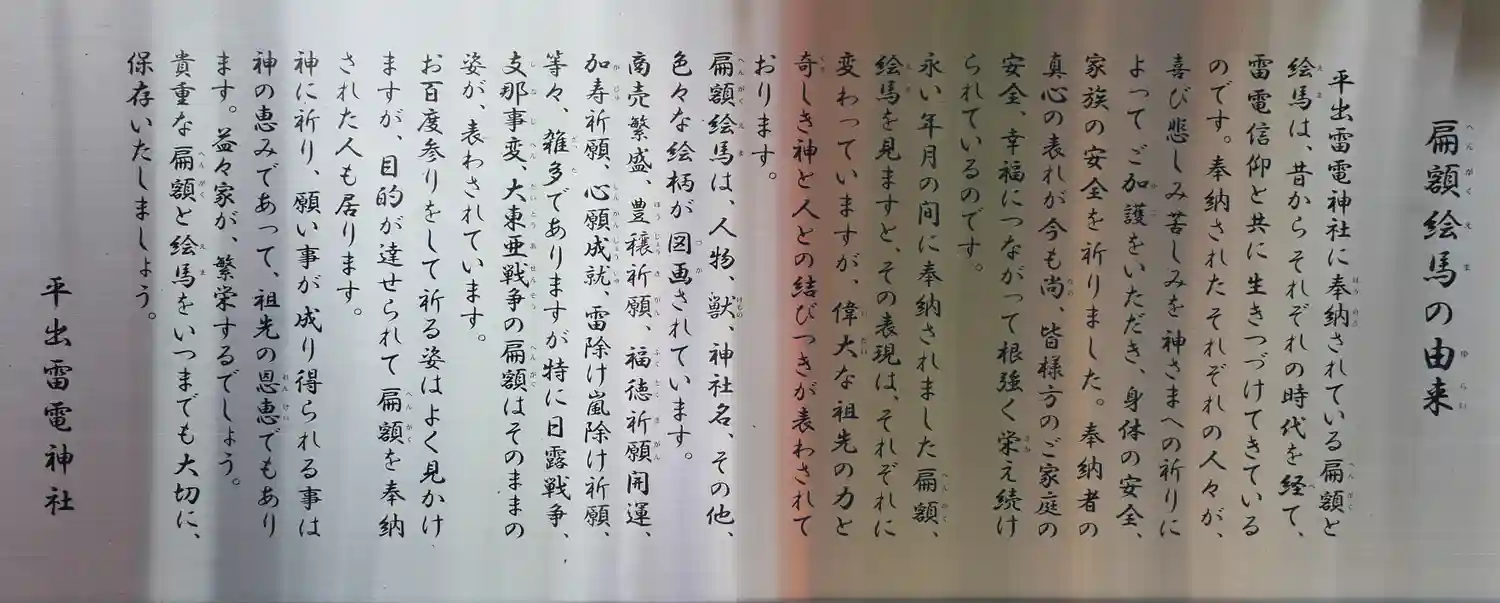 扁額絵馬の由来
平出雷電神社に奉納されている扁額と
絵馬は、昔からそれぞれの時代を経て、
雷電信仰と共に生きつづけてきている
のです。奉納されたそれぞれの人々が、
喜び悲しみ苦しみを神さまへの祈りに
よってご加護をいただき、身体の安全、
家族の安全を祈りました。奉納者の
真心の表れが今も尚、皆様方のご家庭の
安全、幸福につながって根強く栄え続け
られているのです。
永い年月の間に奉納されました扁額、
絵馬を見ますと、その表現は、それぞれに
変わっていますが、偉大な祖先の力と
奇しき神と人との結びつきが表わされて
おります。
扁額絵馬は、人物、獣、神社名、その他、
色々な絵柄が図画されています。
商売繁盛、豊穣祈願、福徳祈願開運、
加寿祈願、心願成就、雷除け嵐除け祈願、
等々、雑多でありますが特に日露戦争、
支那事変、大東亜戦争の扁額はそのままの
姿が、表わされています。
お百度参りをして祈る姿はよく見かけ
ますが、目的が達せられて扁額を奉納
された人も居ります。
神に祈り、願い事が成り得られる事は
神の恵みであって、祖先の恩恵でもあり
ます。益々家が、繁栄するでしょう。
貴重な扁額と絵馬をいつまでも大切に、
保存いたしましょう。
平出雷電神社